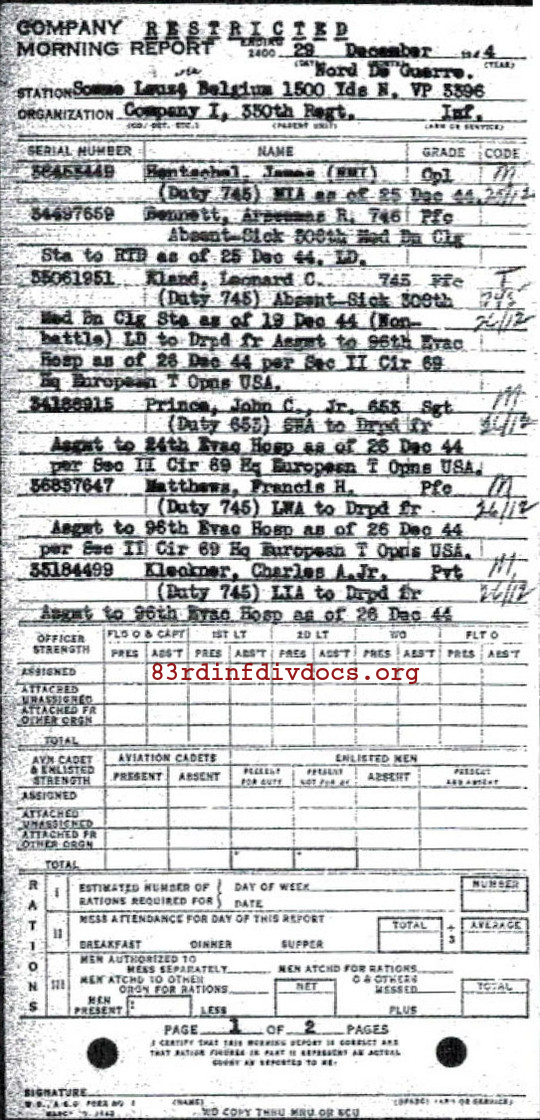 RESTRICTED
COMPANY
MORNING REPORT ENDING 2400 29 December 1944
(DAY) (MONTH) (YEAR)
Nord De Guerre.
STATION Somme Leuze Belgium 1500 Yds N. VP 3396
ORGANIZATION Company I, 330th Regt. Inf.
(CO., DET., ETC.) (PARENT UNIT) (ARM OR SERVICE)
SERIAL NUMBER NAME GRADE CODE
36453449 Hentschel, James (NMI) Cpl M
(Duty 745) MIA as of 25 Dec 44. 25/12
34697659 Bennett, R. 746 Pfc
Absent-Sick 308th Med Bn Clg
Sta to RTD as of 25 Dec 44. LD.
35061951 Kland, Leonard C. 745 Pfc T
(Duty 745) Absent-Sick 308th 745
Med Bn Clg Sta as of 19 Dec 44 (Non- 26/12
battle) LD to Drpd fr Asgmt to 96th Evac
Hosp as of 26 Dec 44 per Sec II Cir 69
Hq European T Opns USA.
34188915 Prince, John C., Jr. 653 Sgt M
(Duty 653) SWA to Drpd fr 26/12
Asgmt to 24th Evac Hosp as of 26 Dec 44
per Sec II Cir 69 Hq European T Opns USA.
36837647 Matthews, Francis H. Pfc M
(Duty 745) LWA to Drpd fr 26/12
Asgmt to 96th Evac Hosp as of 26 Dec 44
per Sec II Cir 69 Hq European T Opns USA.
35184499 Kleckner, Charles A.Jr. Pvt M
(Duty 745) LIA to Drpd fr 26/12
Asgmt to 96th Evac Hosp as of 26 Dec 44
OFFICER STRENGTH FLD O & CAPT 1ST LT 2D LT WO FLT O
PRES ABS'T PRES ABS'T PRES ABS'T PRES ABS'T PRES ABS'T
83rdinfdivdocs.org
ASSIGNED
ATTACHED UNASSIGNED
ATTACHED FR OTHER ORGN
TOTAL
AVN CADET & ENLISTED STRENGTH AVIATION CADETS ENLISTED MEN
PRESENT ABSENT PRESENT FOR DUTY PRESENT NOT FOR DY ABSENT PRESENT AND ABSENT
ASSIGNED
ATTACHED UNASSIGNED
ATTACHED FR OTHER ORGN
TOTAL
RATIONS
I ESTIMATED NUMBER OF DAY OF WEEK NUMBER
RATIONS REQUIRED FOR DATE
II MESS ATTENDANCE FOR DAY OF THIS REPORT TOTAL ÷ 3 AVERAGE
BREAKFAST DINNER SUPPER
III MEN AUTHORIZED TO MESS SEPARATELY MEN ATCHD FOR RATIONS
MEN ATCHD TO OTHER ORGN FOR RATIONS NET O & OTHERS MESSED TOTAL
MEN PRESENT LESS PLUS
PAGE 1 OF 2 PAGES
I CERTIFY THAT THIS MORNING REPORT IS CORRECT AND
THAT RATION FIGURES IN PART II REPRESENT AN ACTUAL
COUNT AS REPORTED TO ME.
SIGNATURE
W.D., A.G.O. FORM NO. 1 (NAME) (GRADE) (ARM OR SERVICE)
WD COPY THRU MRU OR SCU